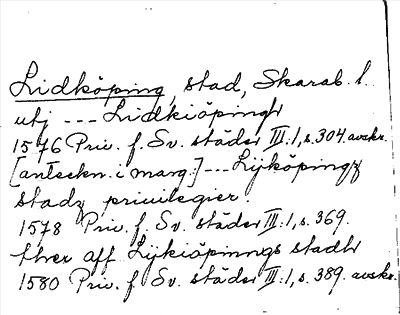 Lidköping, stad, Skarab. l.
utj --- Lidkiöpingh
1576 Priv. f. Sv. städer III:1, s. 304. avskr.
[anteckn. i marg.] --- Lijköpingz
stadz privilegier.
1578 Priv. f. Sv. städer III:1, s. 369.
ther aff Lijkiöpinngs stadh
1580 Priv. f. Sv. städer III:1, s. 389. avskr.